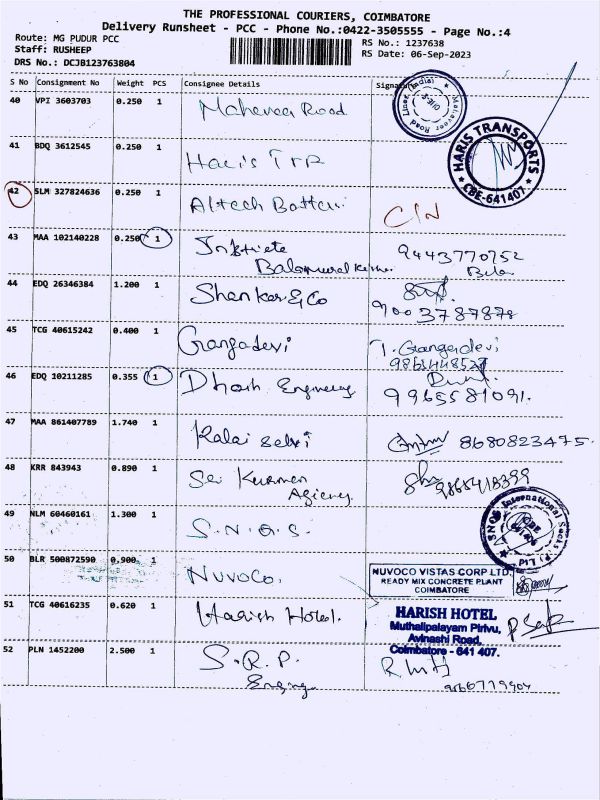 THE PROFESSIONAL COURIERS, COIMBATORE
Delivery Runsheet - PCC - Phone No.:0422-3505555 - Page No.:4
Route: MG PUDUR PCC
Staff: RUSHEEP
DRS No.: DCJB123763804
RS No.: 1237638
RS Date: 06-Sep-2023
S No Consignment No Weight PCS Consignee Details Signature
40 VPI 3603703 0.250 1 Road
Mahaveer Road Lines (India)
41 BDQ 3612545 0.250 1 Haris Trp
HARIS TRANSPORTS
CBE-641407
42 SLM 327824636 0.250 1 Altech C/N
43 MAA 102140228 0.250 1 9443770752
44 EDQ 26346384 1.200 1 Shankar & Co
9003787878
45 TCG 40615242 0.400 1 Gangadevi T. Gangadevi
46 EDQ 10211285 0.355 1 Dhash Engineering
9965581091.
47 MAA 861407789 1.740 1 Kalai Selvi 8680823475.
48 KRR 843943 0.890 1 Sri
49 NLM 60460161 1.300 1 S.N.Q.S.
SNQS International Socks (P) Ltd
50 BLR 500872590 0.900 1 NUVOCO.
NUVOCO VISTAS CORP LTD.
READY MIX CONCRETE PLANT
COIMBATORE
51 TCG 40616235 0.620 1 Harish Hotel.
HARISH HOTEL
Muthalipalayam Pirivu,
Avinashi Road,
Coimbatore - 641 407.
52 PLN 1452200 2.500 1 S.R.P.
Engng